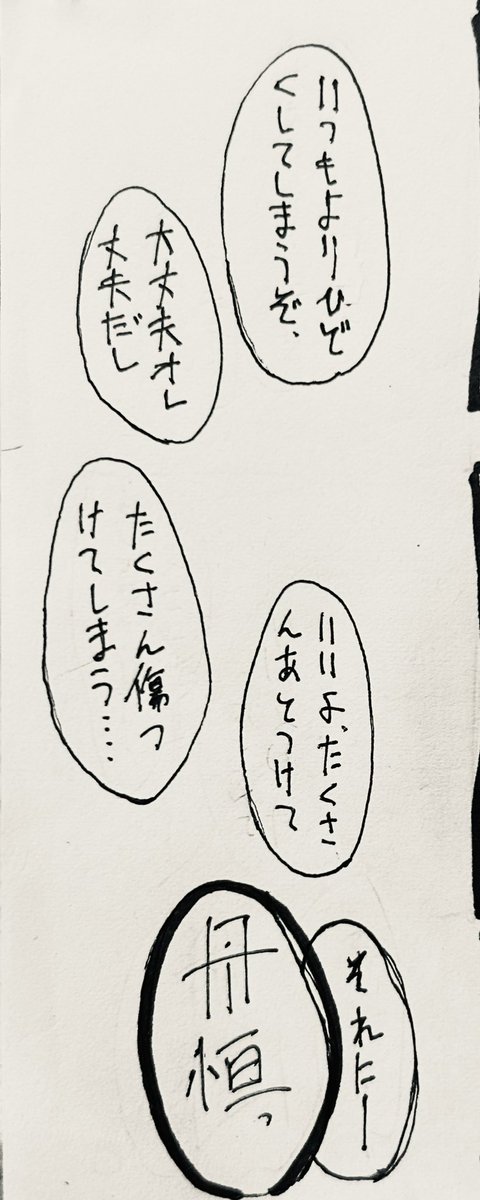 いつもよりひど
くしてしまうぞ、
大丈夫オレ
丈夫だし
たくさん傷つ
けてしまう……
いいよ、たくさ
んあとつけて
それにー
丹恒っ